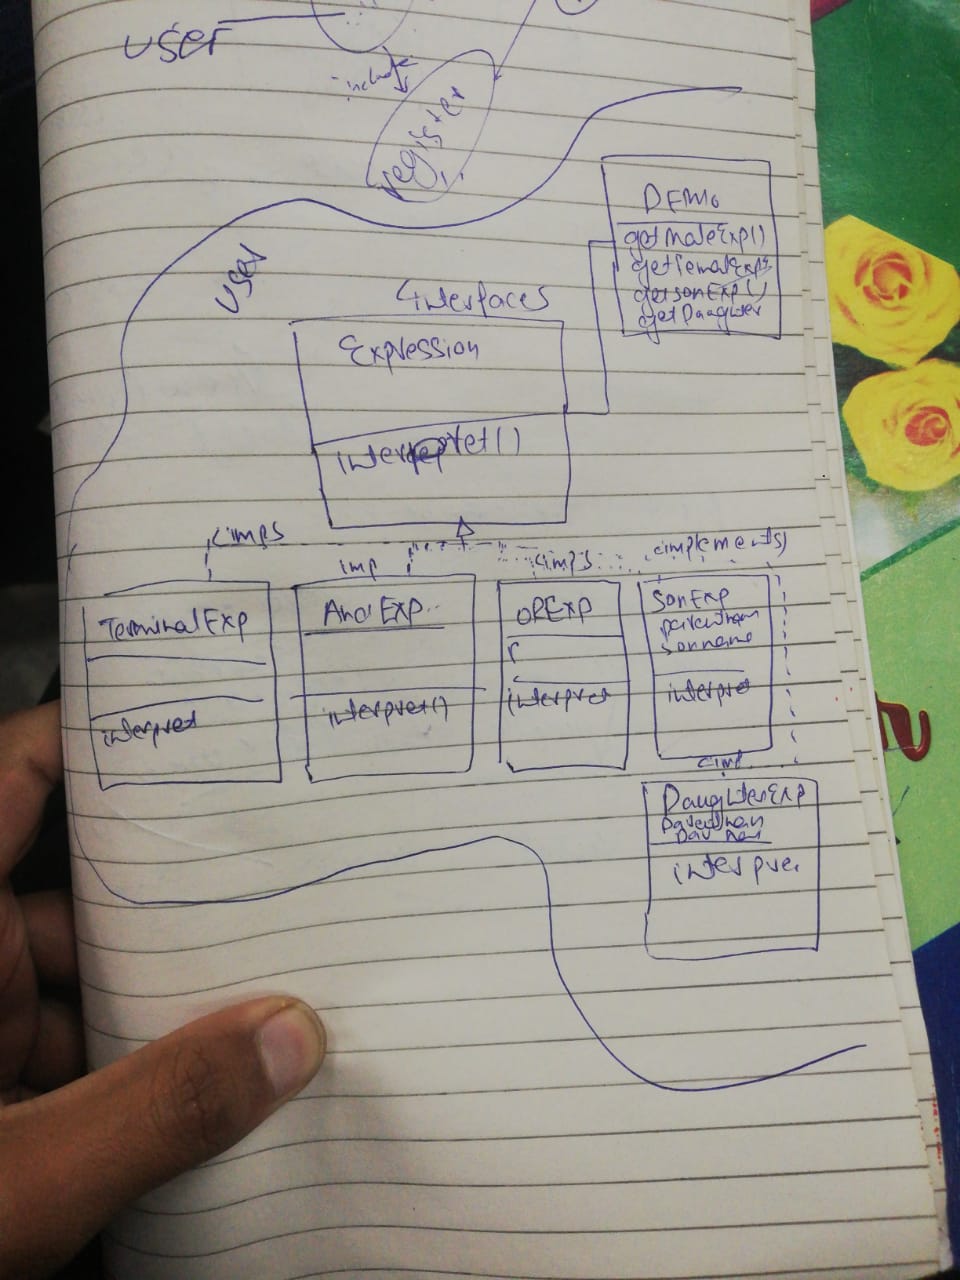 user
include
register
user
DEMO
getMaleExp()
getFemalExp
getsonExp()
getDaughter
<interfaces
Expression
interpret()
<imps
imp
<imps
<implements>
TerminalExp
interpret
AndExp..
interpret()
ORExp
interpret
SonExp
sonname
interpret
<imp
DaughterExp
interpre.